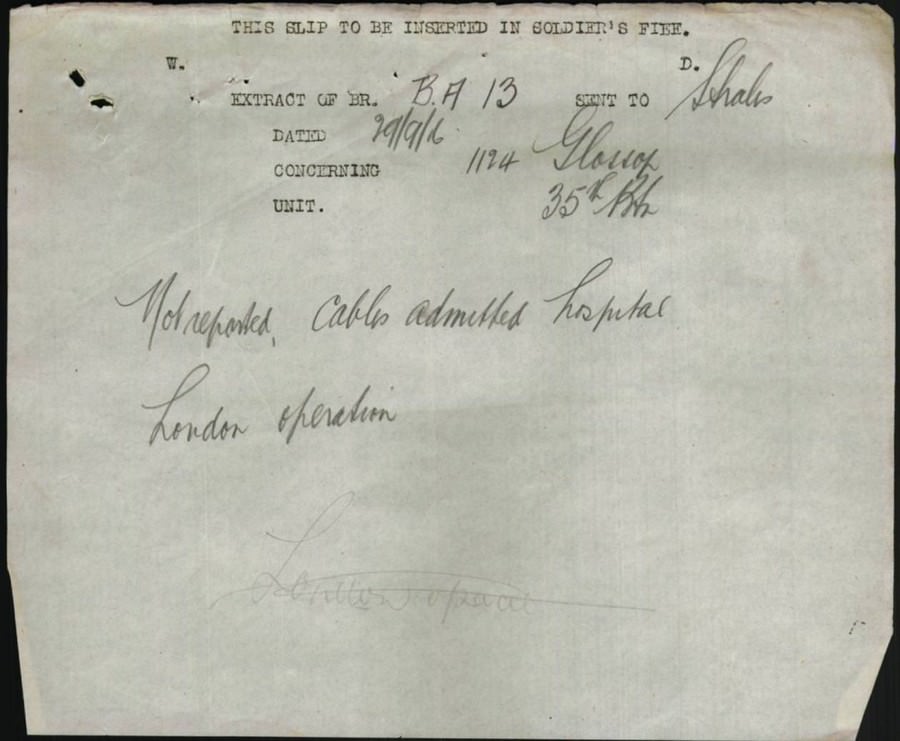 THIS SLIP TO BE INSERTED IN SOLDIER'S FILE.
W. D.
EXTRACT OF BR. B.A 13 SENT TO
DATED 29/9/16
CONCERNING 1124 Glossop
UNIT. 35th Bn
Not reported, Cables admitted hospital
London operation